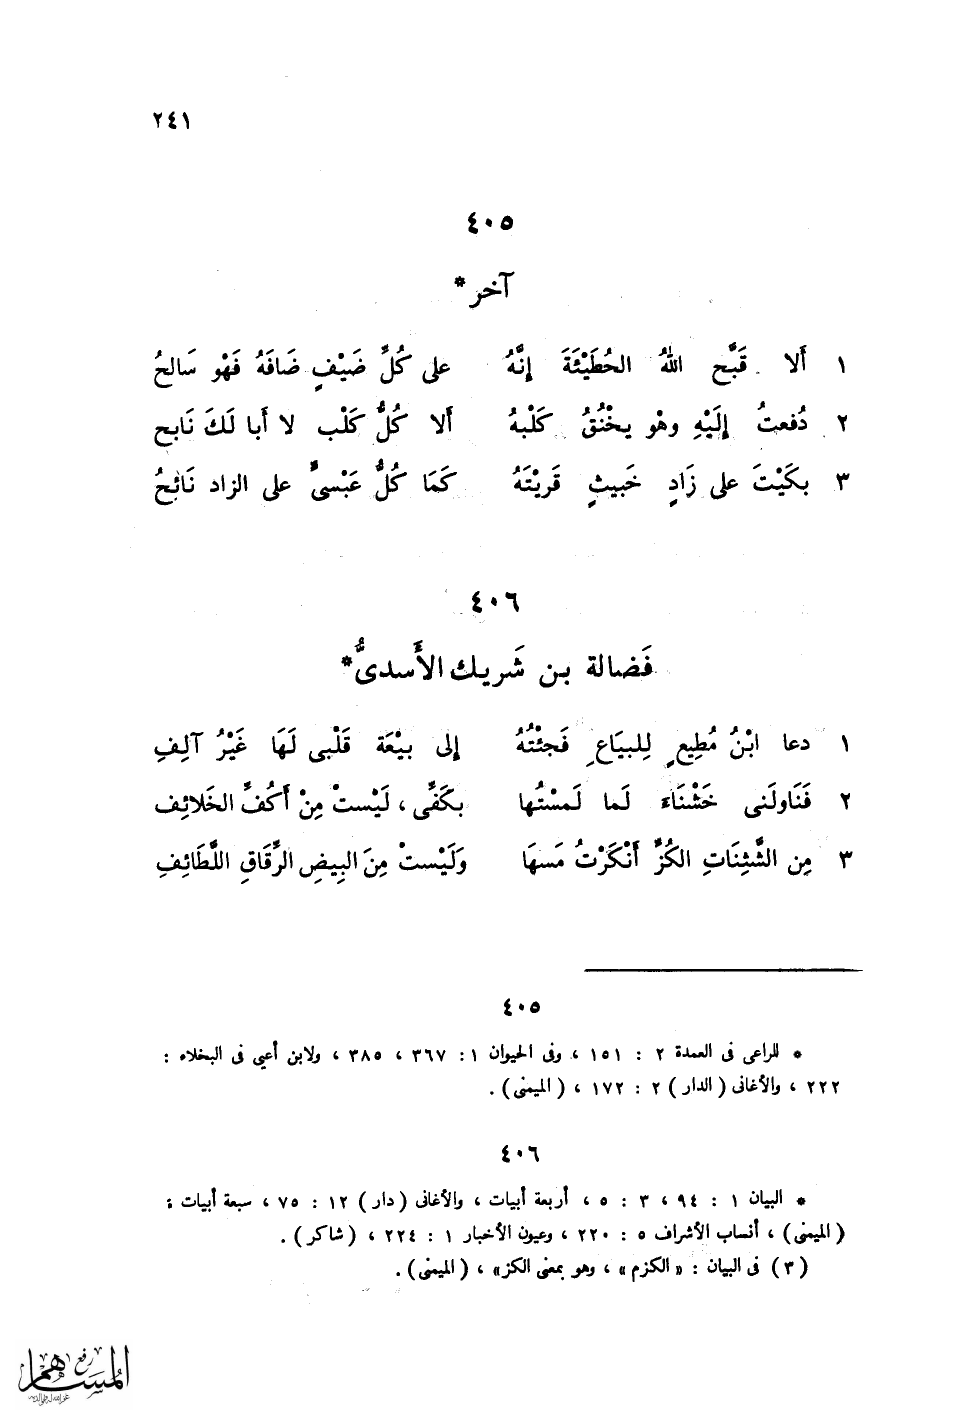 ٢٤١
٤٠٥
آخر *
١ أَلا قَبَّح اللهُ الحُطَيْئَةَ إِنَّهُ على كُلِّ ضَيْفٍ ضَافَهُ فَهْو سَالحُ
٢ دُفعتُ إِلَيْهِ وهْو يخْنُقُ كَلْبهُ أَلا كُلُّ كَلْب لا أَبا لَكَ نَابح
٣ بكَيْتَ على زَادٍ خَبيثٍ قَريْتَهُ كَمَا كُلُّ عَبْسىٍّ على الزاد نَائِحُ
٤٠٦
فَضالة بن شَريك الأَسدىُّ *
١ دعا ابْنُ مُطِيعٍ لِلبيَاعِ فَجئْتُهُ إلى بيْعَة قَلْبى لَهَا غَيْرُ آلِفِ
٢ فَنَاولَنى خَشْنَاءَ لَما لَمسْتُها بكَفِّى ، لَيْستْ مِنْ أَكُفِّ الخَلائِف
٣ مِن الشَّثِنَاتِ الكُزِّ أَنْكَرْتُ مَسهَا وَلَيْستْ مِنَ البِيضِ الرِّقَاقِ اللَّطَائِفِ
٤٠٥
* للراعى فى العمدة ٢ : ١٥١ ، وفى الحيوان ١ : ٣٦٧ ، ٣٨٥ ، ولابن أعيى فى البخلاء :
٢٢٢ ، والأغانى ( الدار ) ٢ : ١٧٢ ، ( الميمنى ) .
٤٠٦
* البيان ١ : ٩٤ ، ٣ : ٥ ، أربعة أبيات ، والأغانى ( دار ) ١٢ : ٧٥ ، سبعة أبيات ؛
( الميمنى ) ، أنساب الأشراف ٥ : ٢٢٠ ، وعيون الأخبار ١ : ٢٢٤ ، ( شاكر ) .
( ٣ ) فى البيان : « الكزم » ، وهو بمعنى الكز » ، ( الميمنى ) .
رفع
المساهم